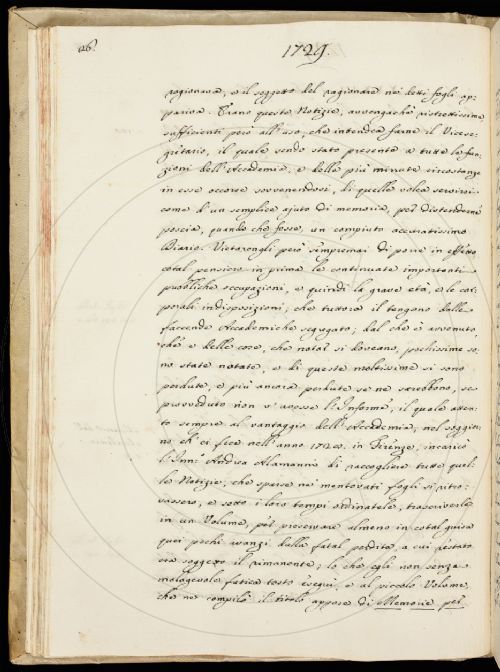 26.
1729.
ragionava, e il soggetto del ragionare ne' detti fogli ap-
pariva. Erano queste Notizie, avvengachè ristrettissime,
sufficienti però all'uso, che intendea farne il Vicese-
gretario, il quale sendo stato presente a tutte le fun-
zioni dell'Accademia, e delle più minute circostanze
in esse occorse sovvenendosi, di quelle volea servirsi
come d'un semplice ajuto di memoria, per distenderne
poscia, quando che fosse, un compiuto accuratissimo
Diario. Vietarongli però sempremai di porre in effetto
cotal pensiero in prima le continuate importanti
pubbliche occupazioni, e quindi la grave età, e le cor-
porali indisposizioni, che tuttora il tengono dalle
faccende Accademiche segregato; dal che è avvenuto
che e delle cose, che notar si doveano, pochissime so-
no state notate, e di queste moltissime si sono
perdute, e più ancora perdute se ne sarebbono, se
provveduto non v'avesse l'Informe, il quale atten-
to sempre al vantaggio dell'Accademia, nel soggior-
no ch'ei fece nell'anno in Firenze, incaricò
l'Inn.º Andrea Alamanni di raccogliere tutte quel-
le Notizie, che sparse ne' mentovati fogli si ritro-
vassero, e sotto i loro tempi ordinatele, trascriverle
in un Volume, per preservare almeno in cotal guisa
quei pochi avanzi dalla fatal perdita, a cui restato
era soggetto il rimanente; lo che egli non senza
malagevole fatica tosto eseguì, e al piccolo Volume,
che ne compilò il titolo appose di Memorie per